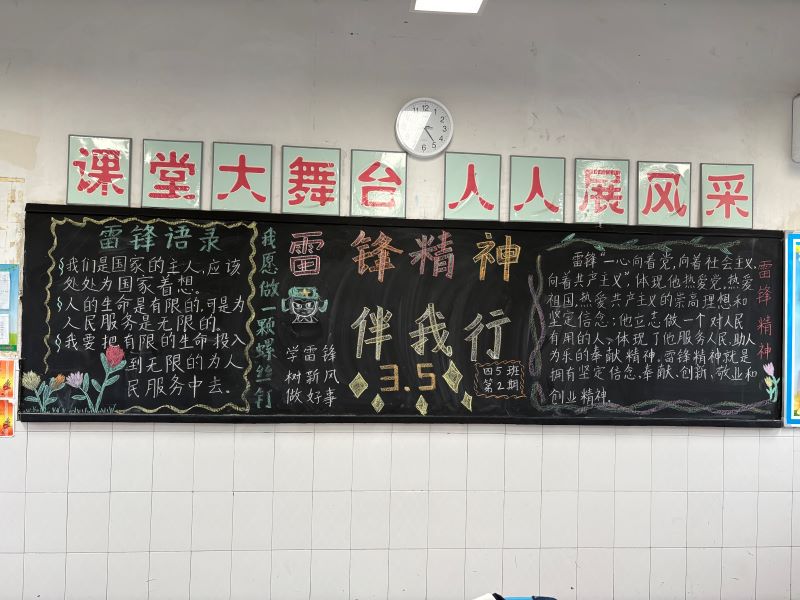 课堂大舞台 人人展风采
雷锋语录
我们是国家的主人,应该
处处为国家着想。
人的生命是有限的,可是为
人民服务是无限的。
我要把有限的生命投入
到无限的为人
民服务中去。
我愿做一颗螺丝钉
雷锋精神
伴我行
学雷锋
树新风
做好事
3.5
四5班
第2期
雷锋“一心向着党,向着社会主义,
向着共产主义”,体现他热爱党,热爱
祖国,热爱共产主义的崇高理想和
坚定信念;他立志做一个对人民
有用的人、体现了他服务人民、助人
为乐的奉献精神。雷锋精神就是
拥有坚定信念,奉献、创新、敬业和
创业精神。
雷锋精神
12
1
2
3
4
5
6
11